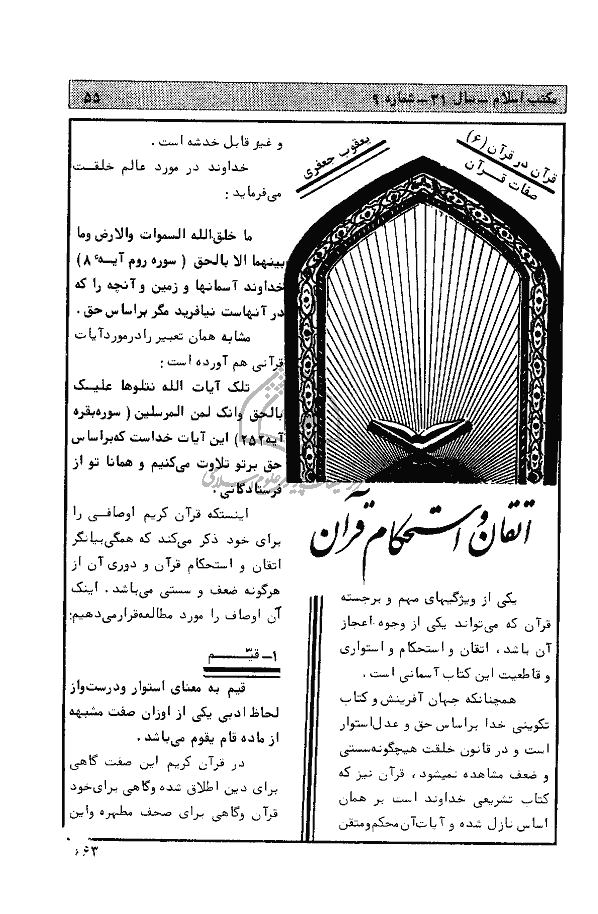 مکتب اسلام ـ سال ۳۱ ـ شماره ۹
۵۵
قرآن در قرآن (۶)
صفات قرآن
یعقوب جعفری
اتقان و استحکام قرآن
یکی از ویژگیهای مهم و برجسته
قرآن که می‌تواند یکی از وجوه اعجاز
آن باشد ، اتقان و استحکام و استواری
و قاطعیت این کتاب آسمانی است .
همچنانکه جهان آفرینش و کتاب
تکوینی خدا براساس حق و عدل استوار
است و در قانون خلقت هیچگونه سستی
و ضعف مشاهده نمیشود ، قرآن نیز که
کتاب تشریعی خداوند است بر همان
اساس نازل شده و آیات آن محکم و متقن
و غیر قابل خدشه است .
خداوند در مورد عالم خلقت
می‌فرماید :
ما خلق‌الله السموات والارض وما
بینهما الا بالحق ( سوره روم آیه ۸ )
خداوند آسمانها و زمین و آنچه را که
در آنهاست نیافرید مگر براساس حق .
مشابه همان تعبیر را درمورد آیات
قرآنی هم آورده است :
تلک آیات الله نتلوها علیک
بالحق وانک لمن المرسلین ( سوره بقره
آیه ۲۵۲) این آیات خداست که براساس
حق برتو تلاوت می‌کنیم و همانا تو از
فرستادگانی .
اینستکه قرآن کریم اوصافی را
برای خود ذکر می‌کند که همگی بیانگر
اتقان و استحکام قرآن و دوری آن از
هرگونه ضعف و سستی می‌باشد . اینک
آن اوصاف را مورد مطالعه قرار می‌دهیم:
۱ـ قیّم
قیم به معنای استوار و درست و از
لحاظ ادبی یکی از اوزان صفت مشبهه
از ماده قام یقوم می‌باشد .
در قرآن کریم این صفت گاهی
برای دین اطلاق شده و گاهی برای خود
قرآن و گاهی برای صحف مطهره و این